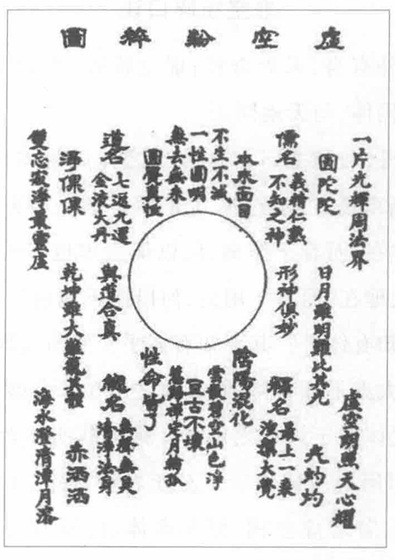 虛空粉粹圖
一片光輝周法界
虛空朗照天心耀
圓陀陀
日月雖明難比其光
光灼灼
儒名
義精仁熟
不知之神
形神俱妙
釋名
最上一乘
大覺
本來面目
陰陽混化
不生不滅
一性圓明
無去無來
圓覺真性
雲散碧空山色淨
亘古不壞
慧歸禪定月輪孤
性命皆了
道名
七返九還
金液大丹
與道合真
總名
無臭
清淨法身
淨倮倮
乾坤雖大難籠其體
赤洒洒
雙忘寂淨最靈虛
海水澄清潭月溶